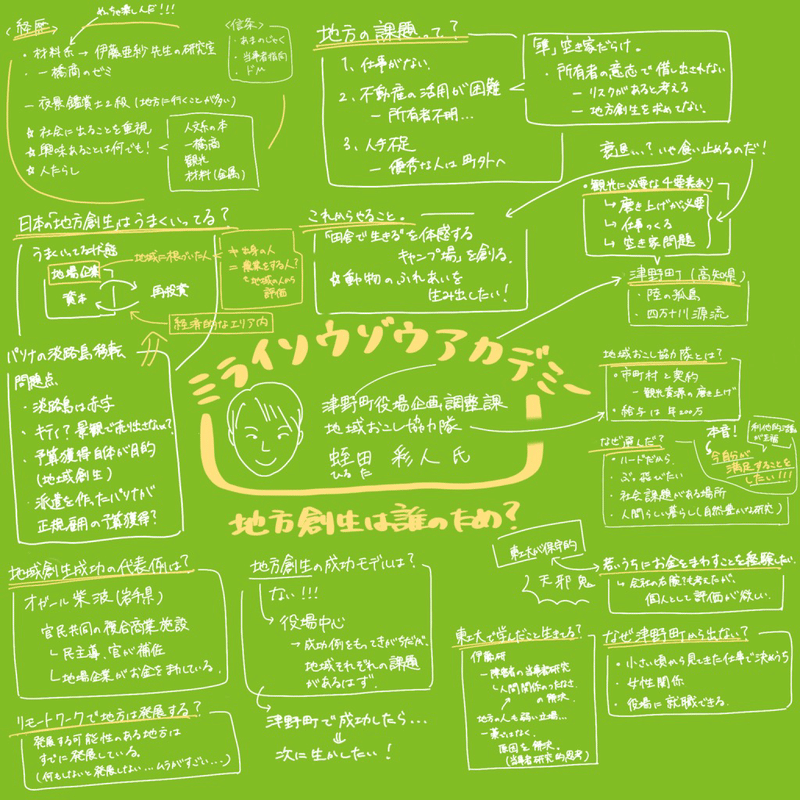 めっちゃ楽しんだ!!!
〈経歴〉
・材料系→伊藤亜紗先生の研究室
・一橋商のゼミ
―夜景鑑賞士2級(地方に行くことが多い)
☆社会に出ることを重視
☆興味あることは何でも!
☆人たらし
人文系の本
一橋商
観光
材料(金属)
〈信条〉
・あまのじゃく
・当事者指向
・ドM
地方の課題って?
1、仕事がない
2、不動産の活用が困難
―所有者不明…
3、人手不足
―優秀な人は町外へ
「準」空き家だらけ。
・所有者の意志で借し出されない
―リスクがあると考える
―地方創生を求めてない。
衰退い?いや食い止めるのだ!
・観光に必要な4要素あり
↳磨き上げが必要
↳仕事つくる
↳空き家問題
津野町(高知県)
・陸の孤島
・四万十川源流
日本の「地方創生」はうまくいってる?
うまくいってる状態
地場企業
資本
再投資
地域に根づいた人
☆出身の人
=農業をする人?
も地域の人から
評価
経済的なエリア内
これからやること。
"田舎で生きる"を体感する
キャンプ場」を創る。
☆動物のふれあいを
生み出したい!
パソナの淡路島移転
問題点
・淡路島は赤字
・キティ?景観で売り出さない?
・予算獲得自体が目的
(地域創生)
・派遣を作ったパソナが
正規雇用の予算獲得?
ミライソウゾウアカデミー
津野町役場企画調整課
地域おこし協力隊
蛭田 彩人 氏
ひるた
地方創生は誰のため?
地域おこし協力隊とは?
・市町村と契約
―観光資源の磨き上げ
・給与は年200万
なぜ選んだ?
・ハードだから
・ぶっ飛びたい
・社会課題がある場所
・人間らしい暮らし(自然豊かな研究)
本音!
今自分が
満足することを
したい!!!
地域創生成功の代表例は?
オガール紫波(岩手県)
官民共同の複合商業施設
↳民主導、官が補佐
↳地場企業がお金を動している。
リモートワークで地方は発展する?
発展する可能性のある地方は
すでに発展している。
(何もしないと発展しない…ムラがすごい…)
地方創生の成功モデルは?
ない!!!
役場中心
→成功例をもってきがちだが、
地域それぞれの課題
があるはず。
津野町で成功したら…
次に生かしたい!
東工大が保守的
天邪鬼
若いうちにお金をまわすことを経験したい
↳会社の右腕でも考えたが、
個人として評価が欲しい。
東工大で学んだこと生きてる?
伊藤研
―障害者の当事者研究
↳人間関係のつたなさ
の解決
地方の人も弱い立場…
―悪ではなく、
原因を解決。
(当事者研究的思考)
なぜ津野町から出ない?
・小さい頃から見てきた仕事で決めうち
・女性関係
・役場に就職できる。